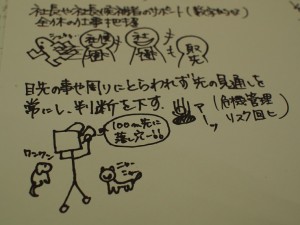 社長や社長候補者のサポート(数字から)
全体の仕事把握
社長
取先
目先の事や周りにとらわれず先の見通しを
常にし、判断を下す。
(危機管理
リスク回ヒ)
100m先に
落し穴ーー!!
ワンワン
ニャー
ニャー